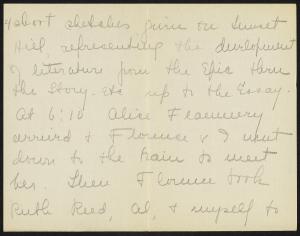 4 short sketches given on Sunset
Hill, representing the development
of literature from the Epic thru
the Story - etc up to the Essay.
At 6:10 Alice Flannery
arrived & Florence & I went
down to the train to meet
her. Then Florence took
Ruth Reed, Al, & myself to